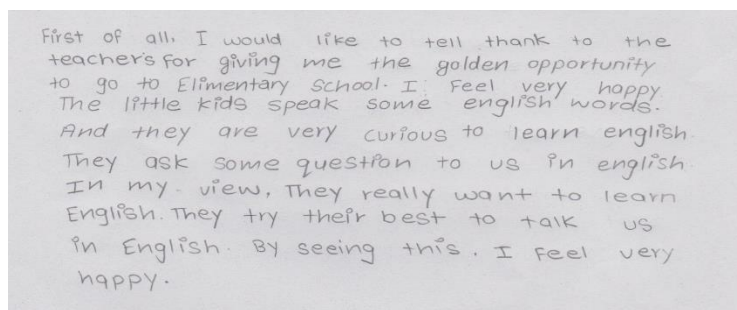 First of all, I would like to tell thank to the
teachers for giving me the golden opportunity
to go to Elimentary School. I Feel very happy
The little kids speak some english words.
And they are very curious to learn english.
They ask some question to us in english
In my view, They really want to learn
English. They try their best to talk us
in English. By seeing this, I Feel very
happy.